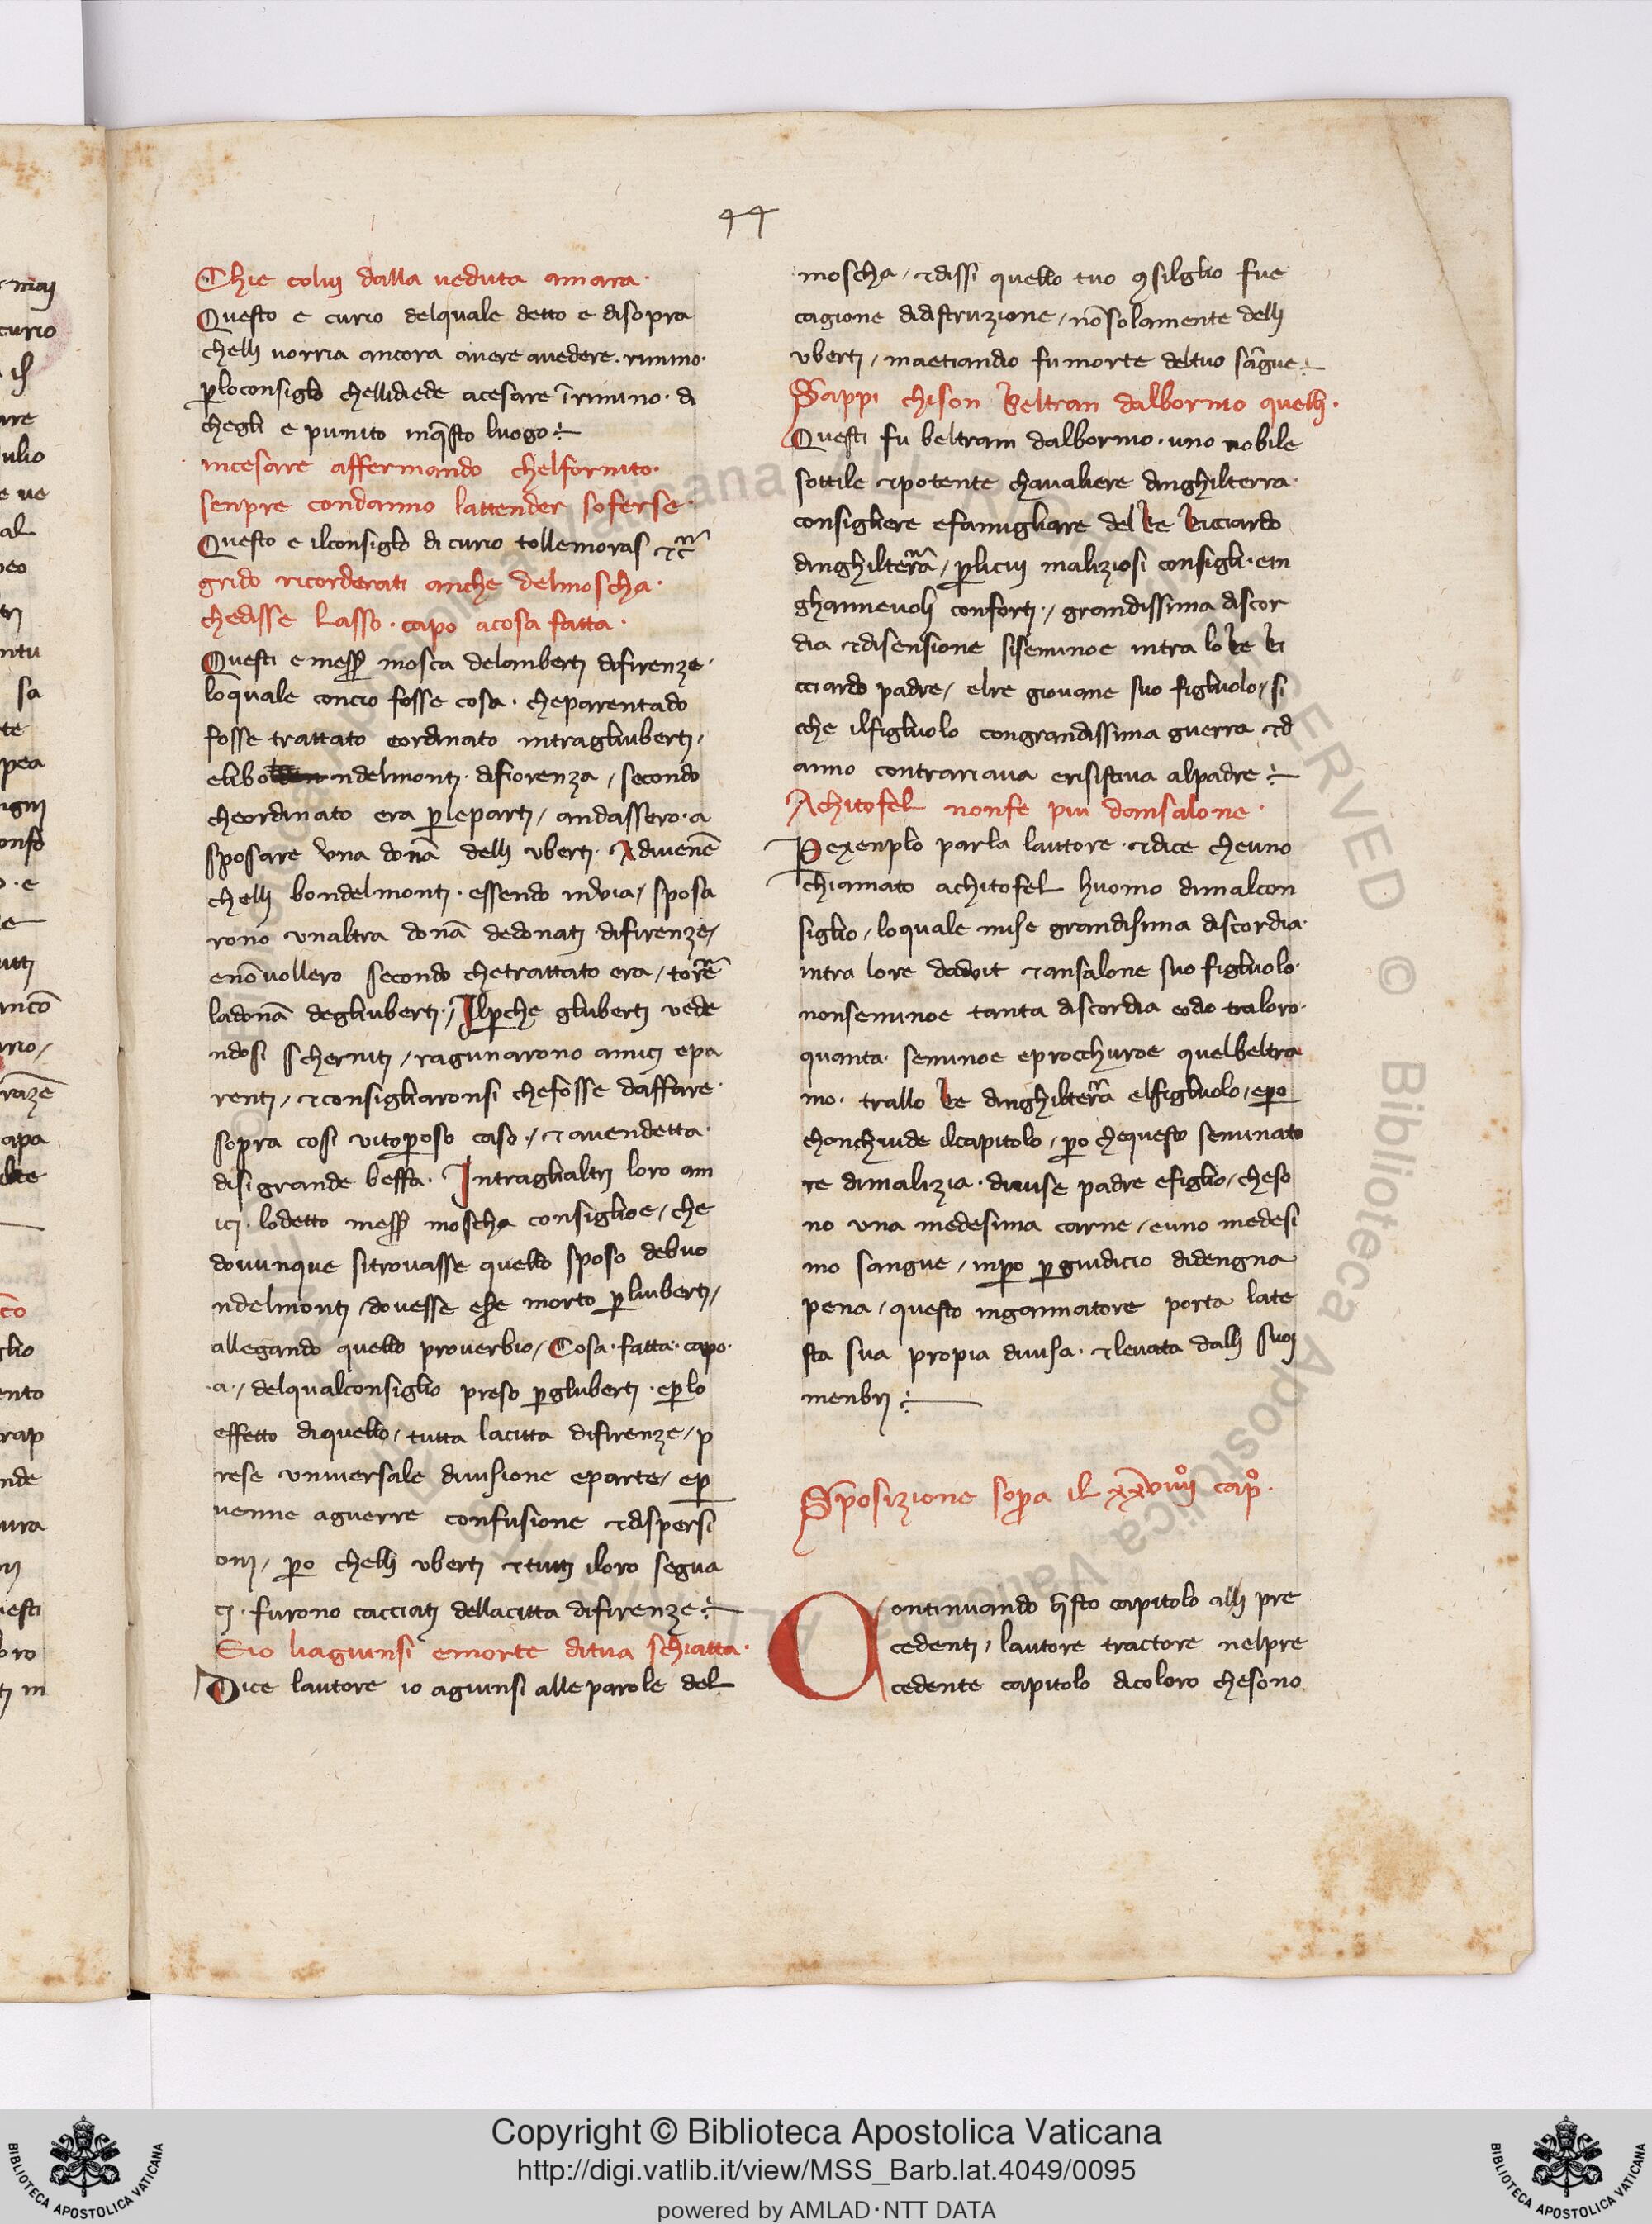 44
Chie coluj dalla ueduta amara·
Questo e curio delquale detto e disopra
chellj uorria ancora auere auedere· rimino·
ꝑloconsiglo chellidiede acesare ī rimino· di
cheglı e punito inq̄sto luogo
incesare affermando chelfornito·
senpre condanno lattender soferse·
Questo e ilconsiglo di curio tollemoras ⁊c̃
grido ricorderati anche delmoscha·
chedisse lasso· capo acosa fatta·
Questi e messꝰ mosca delambertj difirenze·
loquale concio fosse cosa· cheparentado
fosse trattato eordinato intragliubertj/
elibo ndelmontj· difiorenza / secondo
cheordinato era ꝑlepartj / andassero· a
sposare vna donā dellj vbertj· Adiuenē
chellj bondelmontj· essendo invia / sposa
rono vnaltra donā dedonatj difirenze/
enōvollero secondo chetrattato era / torrē
ladonā degliubertj·/ Ilꝑche glubertj vede
ndosi schernitj / ragunarono amicj epa
rentj / ⁊consigliaronsi chefosse daffare·
sopra cosi vitoꝑoso caso·/ ⁊auendetta·
disi grande beffa· Intraglialtrj loro am
icj· lodetto messꝰ moscha consiglioe / che
douunque sitrouasse quello sposo debuo
ndelmontj / douesse eſſe morto ꝑliubertj/
allegando quello prouerbio / Cosa· fatta· capo·
·a·/ delqualconsiglio preso ꝑglubertj· eꝑlo
effetto diquello / tutta lacitta difirenze / p
rese vniuersale diuisione eparte / eꝑ
uenne aguerre confusione ⁊dispersi
onj / ꝑo chellj vbertj ⁊tuttj iloro segua
cj· furono cacciatj dellacitta difirenze
Eio liagiunsi emorte ditua schiatta·
Dice lautore io agiunsi alle parole del
moscha / ⁊dissi quello tuo ꝯsilglio fue
cagione didistruzione / nōsolamente dellj
vbertj / maetiandio fumorte deltuo sāgue
Sappi chison Beltran dalbornio quellj·
Questi fu beltram dalbornio· uno nobile
sottile ⁊potente chavaliere dinghilterra·
consigliere efamigliare del Re Ricciardo
dinghilterrā / ꝑlicui maliziosi consigli· ein
ghanneuolj confortj·/ grandissima discor
dia ⁊disensione siseminoe intra lo Re Ri
cciardo padre / elre giovane suo figliuolo / si
che ilfigliuolo congrandissima guerra ⁊d
anno contrariaua erisistiua alpadre
Achitofel nonfe piu dansalone·
Pexenplo parla lautore· ⁊dice cheuno
chiamato achitofel huomo dimalcon
siglio / loquale mise grandisima discordia·
intra lore davit ⁊ansalone suo figliuolo·
nonseminoe tanta discordia eodio traloro·
quanta· seminoe eprocchuroe quelbeltra
mo· trallo Re dinghilterrā elfigliuolo / eꝑo
chonchiude ilcapitolo / ꝑo chequesto seminato
re dimalizia· diuise padre efiglio / cheso
no una medesima carne / euno medesi
mo sangue / inꝑo ꝑ giudicio didengna
pena / questo ingannatore porta late
sta sua propia diuisa· ⁊leuata dallj suoj
menbrj
Sposizione soꝑa il xxviiijº capº·
Continuando q̄sto capitolo allj pre
cedenti / lautore tractore nelpre
cedente capitolo dicoloro chesono
Copyright © Biblioteca Apostolica Vaticana
http://digi.vatlib.it/view/MSS_Barb.lat.4049/0095
powered by AMLAD·NTT DATA